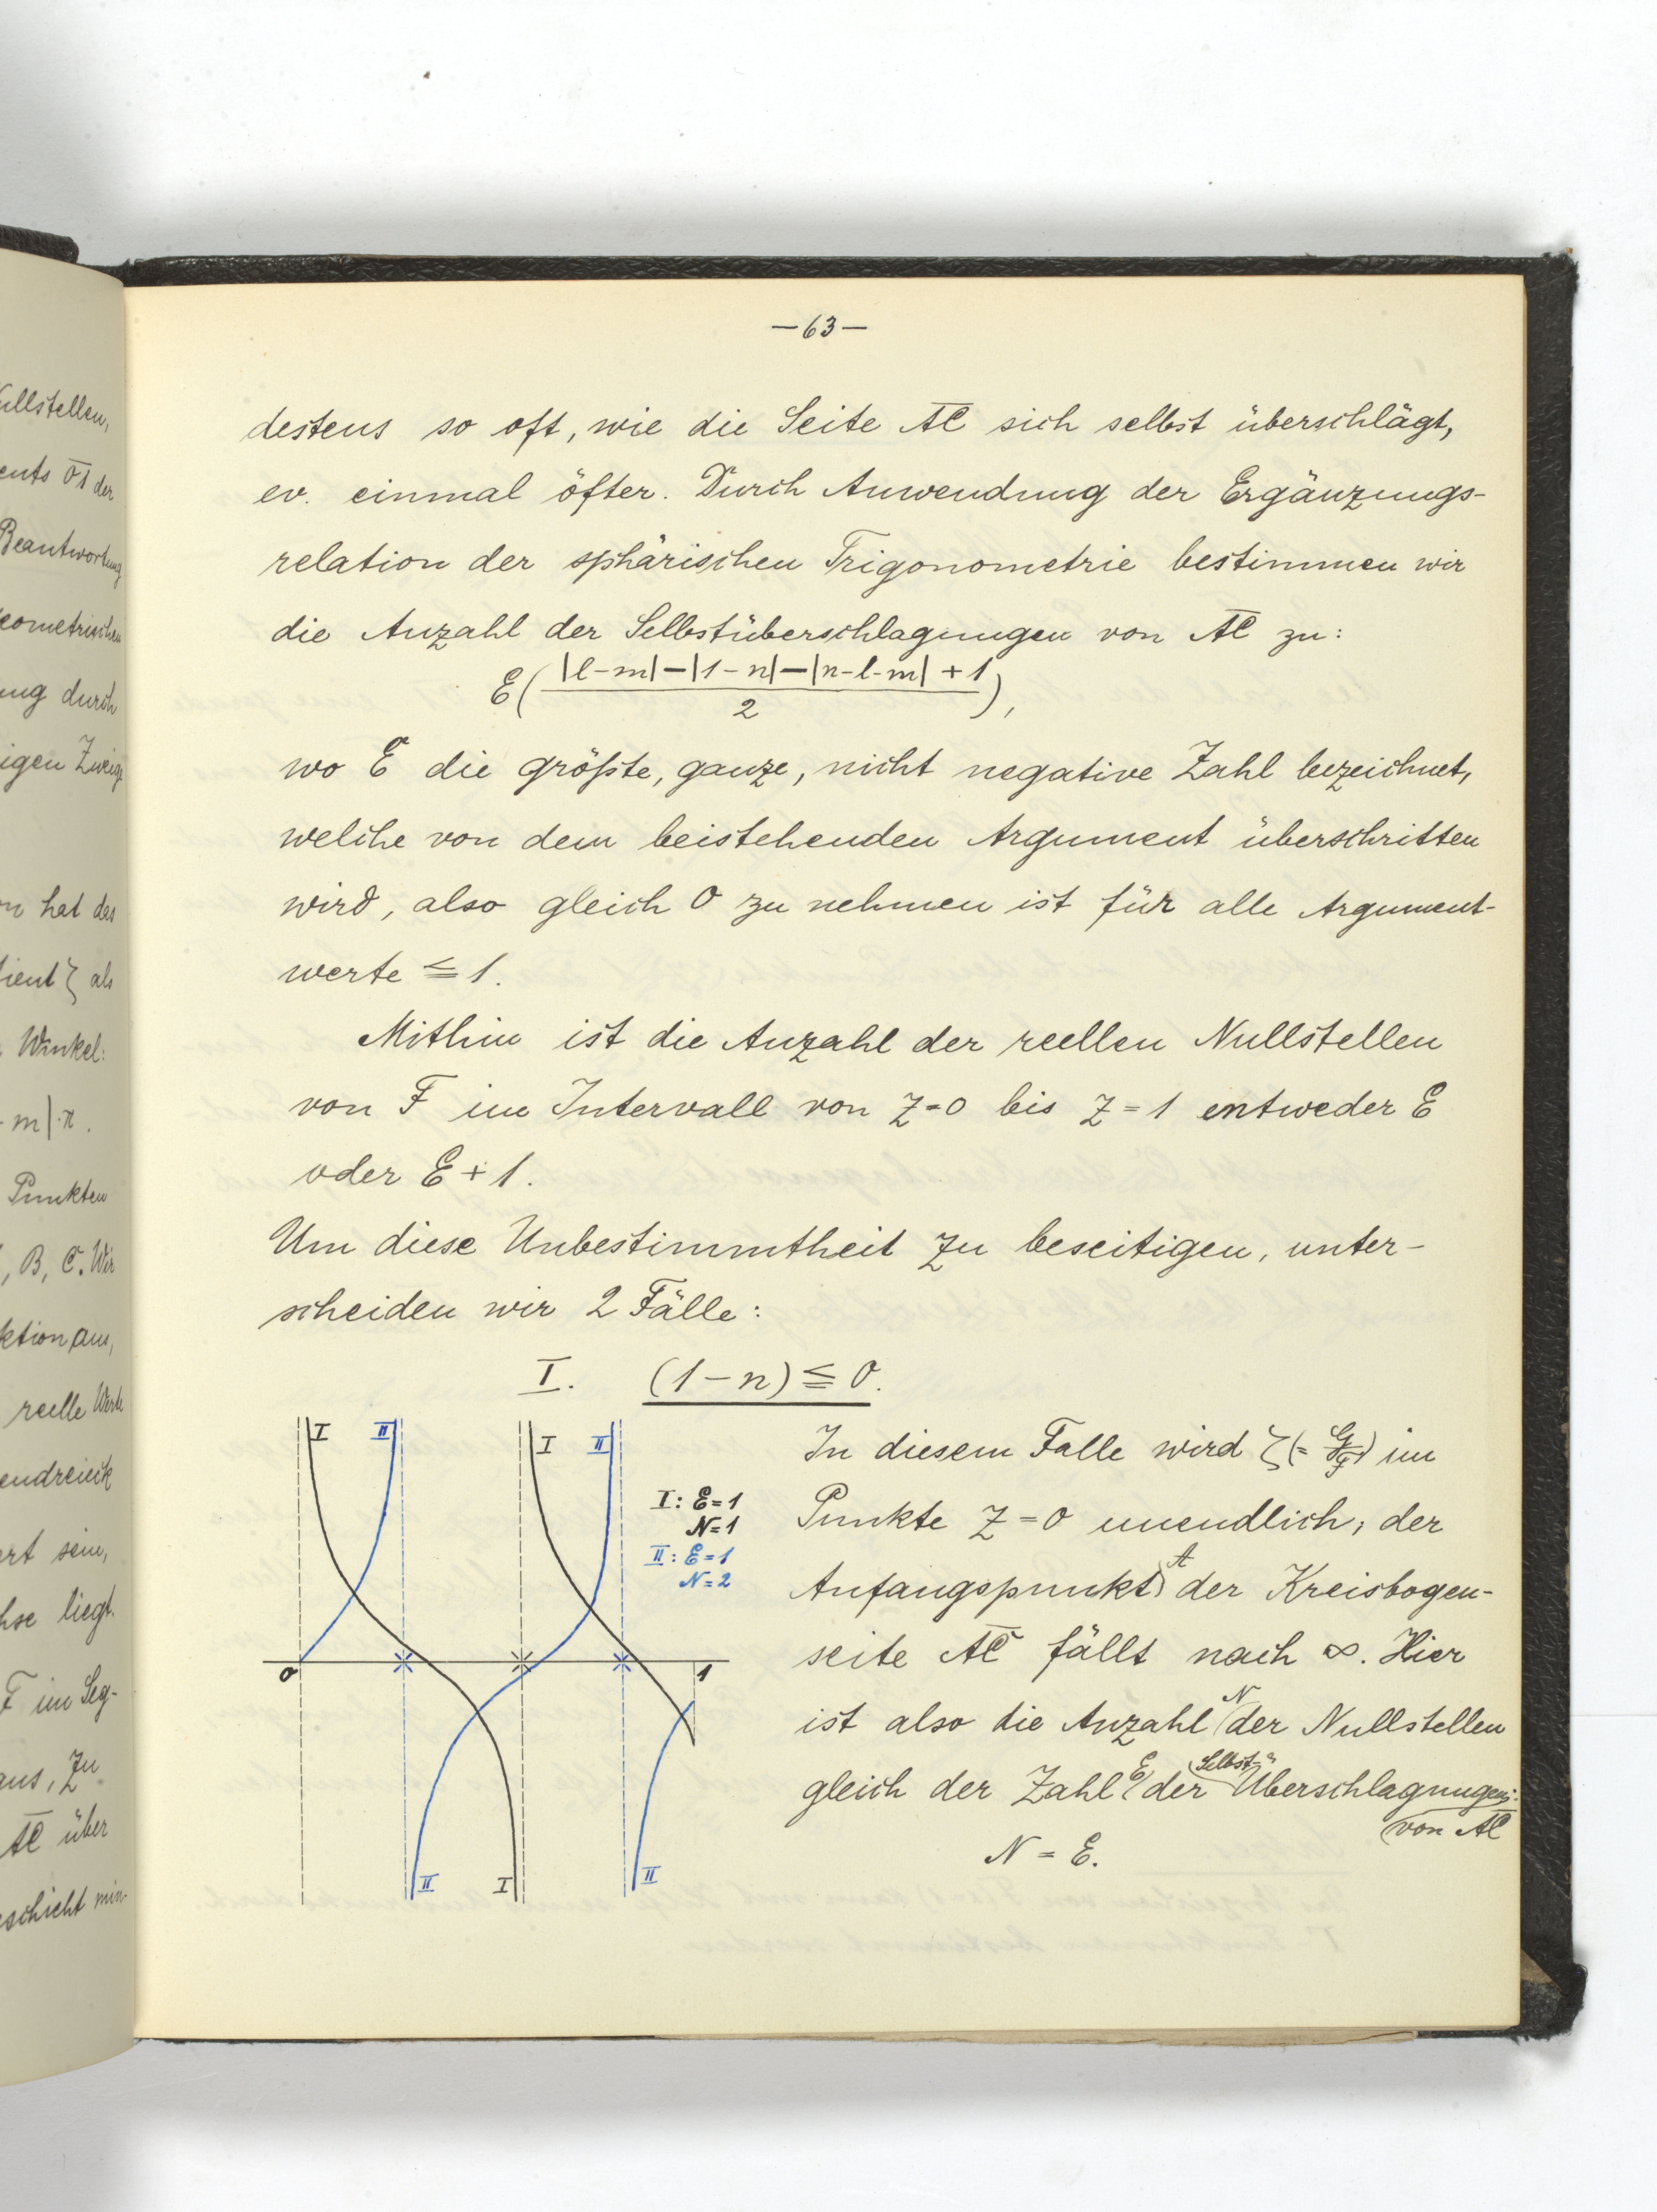 ullstellen,
ents 01 der
Beantwortung
eometrischen
ung durch
igen Zweige
n hat das
tient ζ als
Winkel:
- m|·π.
Punkten
, B, C. Wir
ktion aus,
reelle Werte
endreieck
ert sein,
hse liegt.
F im Seg-
aus, zu
AC über
eschieht min-
— 63 —
destens so oft, wie die Seite AC sich selbst überschlägt,
ev. einmal öfter. Durch Anwendung der Ergänzungs-
relation der sphärischen Trigonometrie bestimmen wir
die Anzahl der Selbstüberschlagungen von AC zu:
E( |l-m|-|1-n|-|n-l-m|+1 / 2 ),
wo E die größte, ganze, nicht negative Zahl bezeichnet,
welche von dem beistehenden Argument überschritten
wird, also gleich 0 zu nehmen ist für alle Argument-
werte ≦ 1.
Mithin ist die Anzahl der reellen Nullstellen
von F im Intervall von z=0 bis z=1 entweder E
oder E+1.
Um diese Unbestimmtheit zu beseitigen, unter-
scheiden wir 2 Fälle:
I. (1-n) ≦ 0.
I II I II
I: E=1
N=1
II: E=1
N=2
0 1
II I II
In diesem Falle wird ζ(= G/F) im
Punkte z=0 unendlich, der
Anfangspunkt A der Kreisbogen-
seite AC fällt nach ∞. Hier
ist also die Anzahl N der Nullstellen
gleich der Zahl E der Selbst-Überschlagungen:
von AC
N = E.